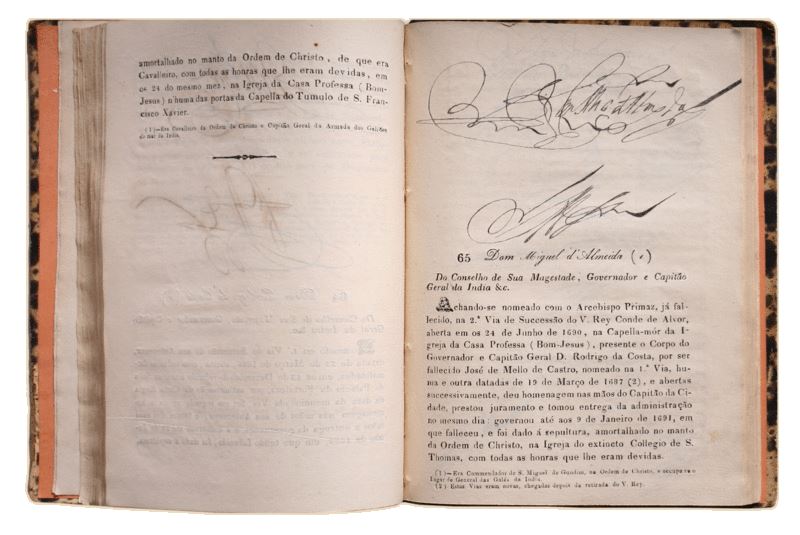 amortalhado no manto da Ordem de Christo, de que era
Cavalleiro, com todas as honras que lhe eram devidas, em
os 24 do mesmo mez, na Igreja da Casa Professa (Bom-
Jesus) n'huma das portas da Capella do Tumulo de S. Fran-
cisco Xavier.
(1)—Era Cavalleiro da Ordem de Christo e Capitão Geral da Armada dos Galeões
do mar da India.
65 Dom Miguel d'Almeida (1)
Do Conselho de Sua Magestade, Governador e Capitão
Geral da India &c.
Achando-se nomeado com o Arcebispo Primaz, já fal-
lecido, na 2.ª Via de Successão do V. Rey Conde de Alvor,
aberta em os 24 de Junho de 1690, na Capella-mór da I-
greja da Casa Professa (Bom-Jesus), presente o Corpo do
Governador e Capitão Geral D. Rodrigo da Costa, por ser
fallecido José de Mello de Castro, nomeado na 1.ª Via, hu-
ma e outra datadas de 19 de Março de 1687 (2), e abertas
successivamente, deu homenagem nas mãos do Capitão da Ci-
dade, prestou juramento e tomou entrega da administração
no mesmo dia: governou até aos 9 de Janeiro de 1691, em
que falleceu, e foi dado á sepultura, amortalhado no manto
da Ordem de Christo, na Igreja do extincto Collegio de S.
Thomas, com todas as honras que lhe eram devidas.
(1)—Era Commendador de S. Miguel de Gundim, na Ordem de Christo, e occupava o
lugar de General das Galés da India.
(2) Estas Vias eram novas, chegadas depois da retirada do V. Rey.